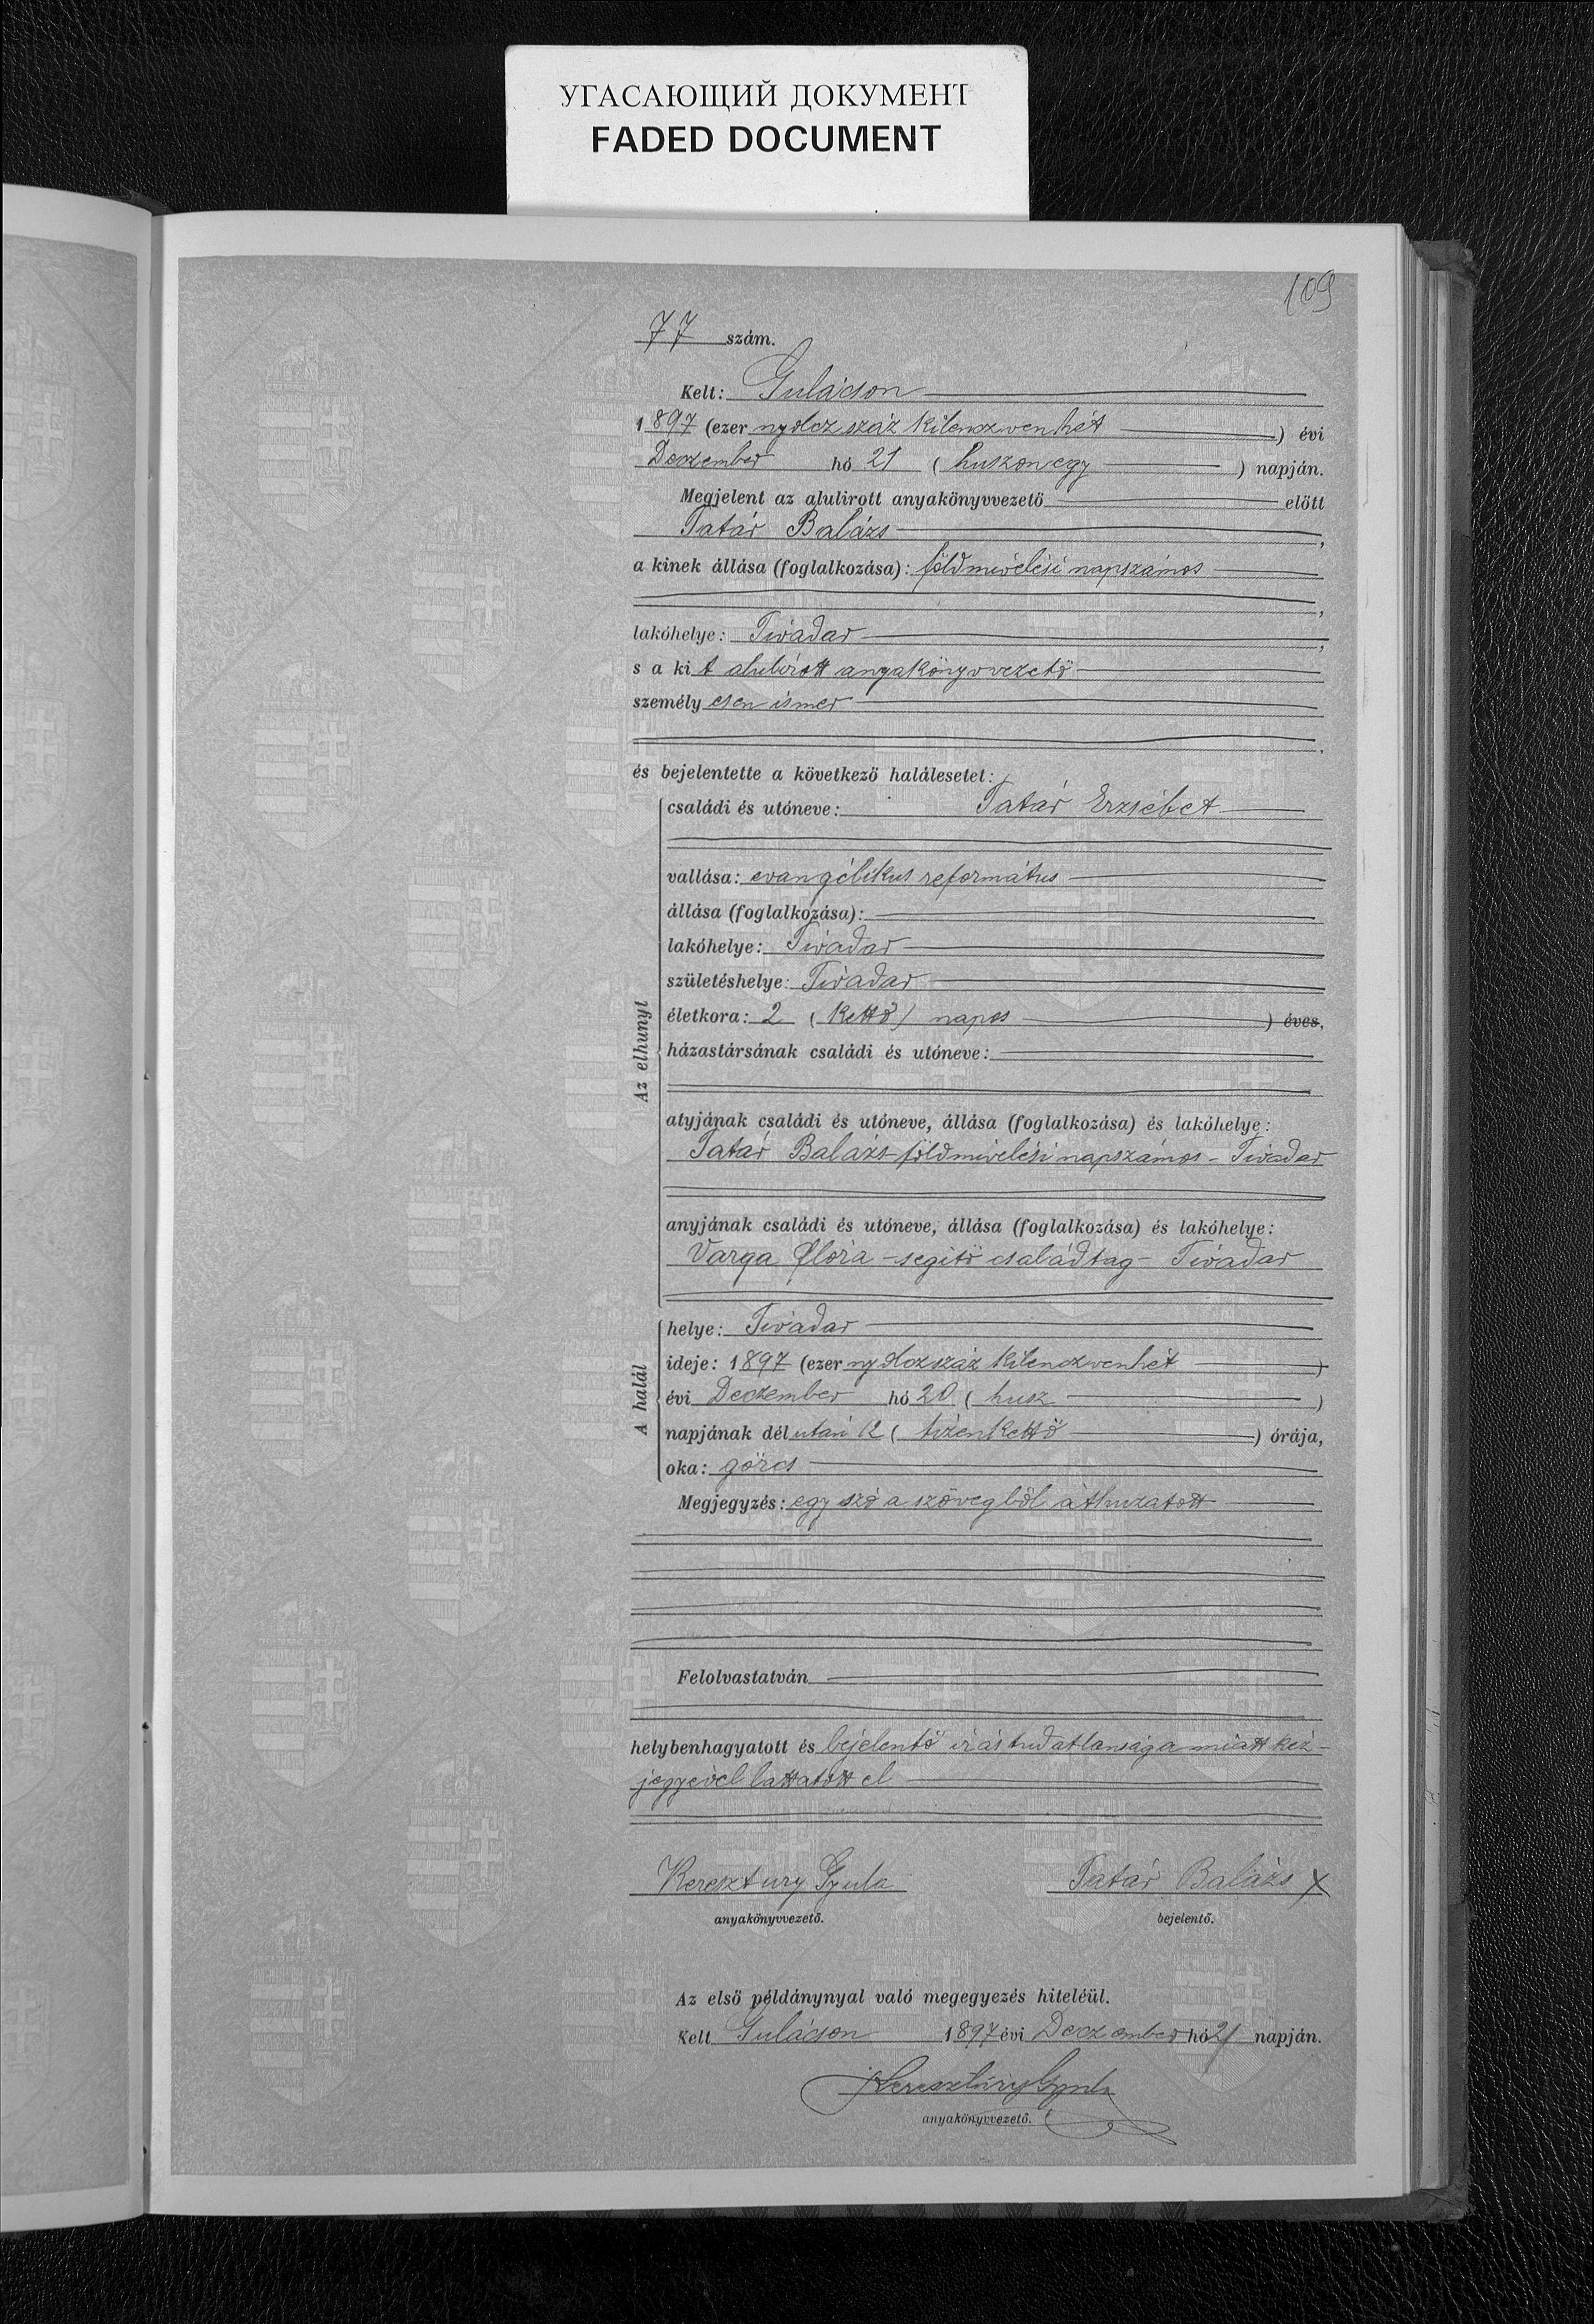 УГАСАЮЩИЙ ДОКУМЕНТ
FADED DOCUMENT
109
77 szám.
Kelt: Gulácson
1897 (ezer nyolcz száz kilenczvenhét) évi
Deczember hó 21 (huszonegy) napján.
Megjelent az alulirott anyakönyvvezető előtt
Tatár Balázs,
a kinek állása (foglalkozása): földmivelési napszámos,
lakóhelye: Tivadar,
s a kit alulirott anyakönyvvezető
személyesen ismer.
és bejelentette a következő halálesetet:
Az elhunyt
családi és utóneve: Tatár Erzsébet
vallása: evangélikus református
állása (foglalkozása):
lakóhelye: Tivadar
születéshelye: Tivadar
életkora: 2 (kettő) napos ) éves,
házastársának családi és utóneve:
atyjának családi és utóneve, állása (foglalkozása) és lakóhelye:
Tatár Balázs - földmivelési napszámos - Tivadar
anyjának családi és utóneve, állása (foglalkozása) és lakóhelye:
Varga Flóra - segitő családtag - Tivadar
A halál
helye: Tivadar
ideje: 1897 (ezer nyolczszáz kilenczvenhét)
évi Deczember hó 20 (husz)
napjának délutáni 12 (tizenkettő) órája,
oka: görcs
Megjegyzés: egy szó a szövegből áthuzatott
Felolvastatván
helybenhagyatott és bejelentő irástudatlansága miatt kéz-
jegyével láttatott el
Keresztury Gyula Tatár Balázs X
anyakönyvvezető. bejelentő.
Az első példánynyal való megegyezés hiteléül.
Kelt Gulácson 1897 évi Deczember hó 21 napján.
Keresztury Gyula
anyakönyvvezető.